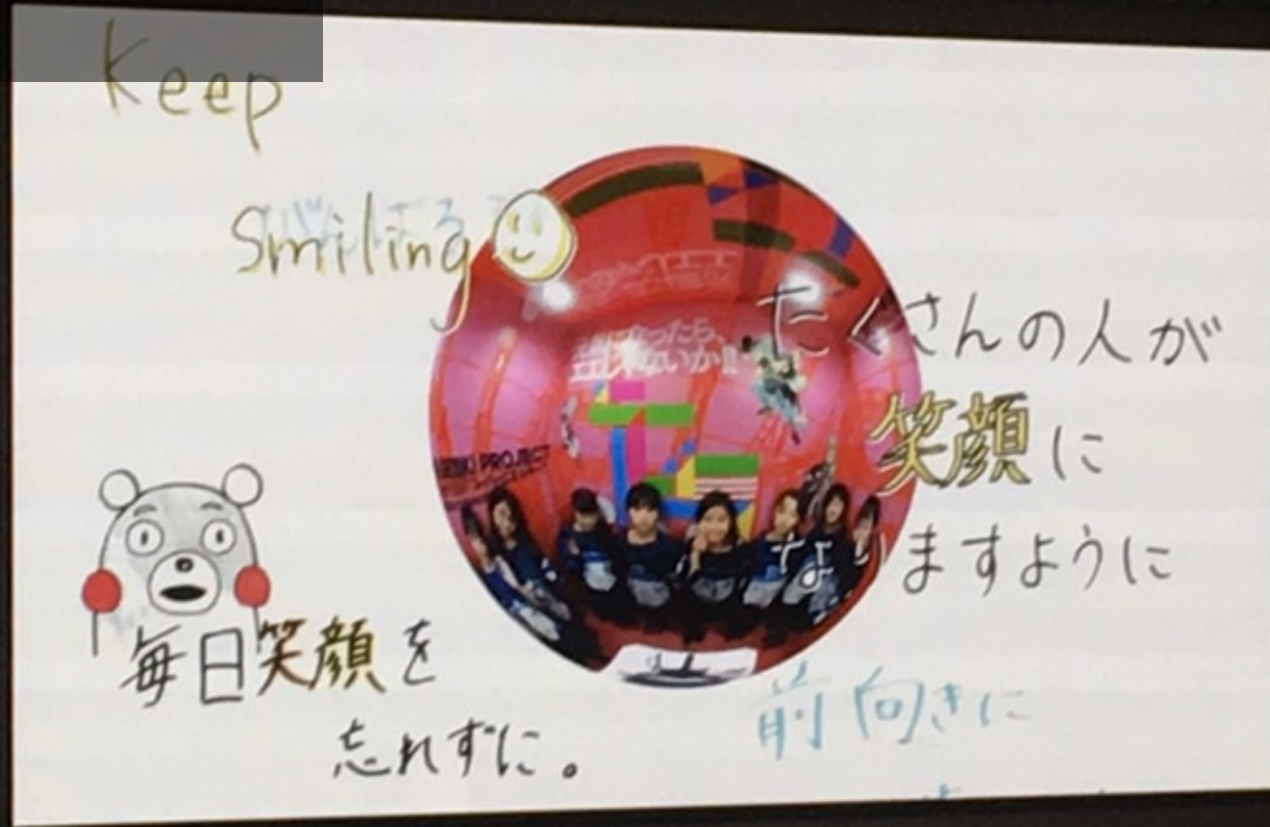 Keep
Smiling
たくさんの人が
笑顔に
なりますように
毎日笑顔を
忘れずに。
前向きに
PROJECT